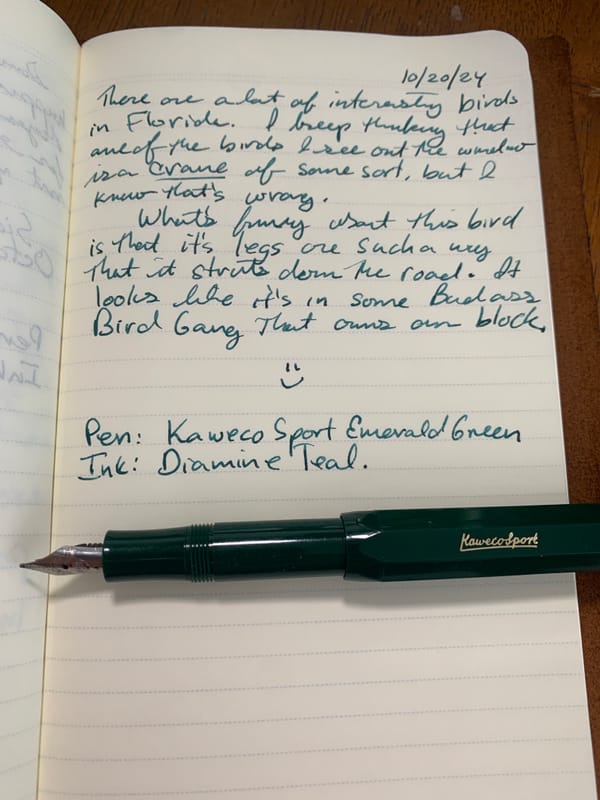 10/20/24
There are a lot of interesting birds
in Florida. I keep thinking that
one of the birds I see out the window
is a crane of some sort, but I
know that's wrong.
What's funny about this bird
is that it's legs are such a way
that it struts down the road. It
looks like it's in some Badass
Bird Gang that owns our block.
Pen: Kaweco Sport Emerald Green
Ink: Diamine Teal.
Kaweco Sport